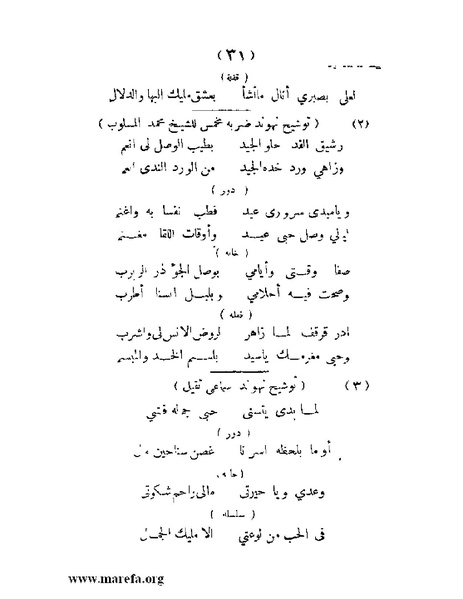 (٣١)
( قفلة )
لعلى بصبري أنال مانشأ بعشق مليك البها والدلال
(٢) ( توشيح نهوند ضربه مخمس للشيخ محمد المسلوب )
رشيق القد حلو الجيد بطيب الوصل لى انعم
وزاهي ورد خده الجيد من الورد الندى انعم
( دور )
ويامبدى سروری عيد فطب نفسا به واغنم
وصل حبى عيد وأوقات اللقا مغنم
( خانه )
صفا وقتى وأيامي بوصل الجؤذر الربرب
وصحت فيه أحلامي وبلبل انسنا أطرب
( قفله )
ادر قرقف لما زاهر لروض الانس لى واشرب
وحبى مغرمك ياسيد بلسم الخد والمبسم
(٣) ( توشيح نهوند سماعى ثقيل )
لما بدى يتثنى حبى جماله فتنى
( دور )
أوما بلحظه اسرنا غصن سناحين
( خانه )
وعدي ويا حيرتى مالى راحم شكوتى
( سلسله )
فى الحب من لوعتي الا مليك الجمال
www.marefa.org